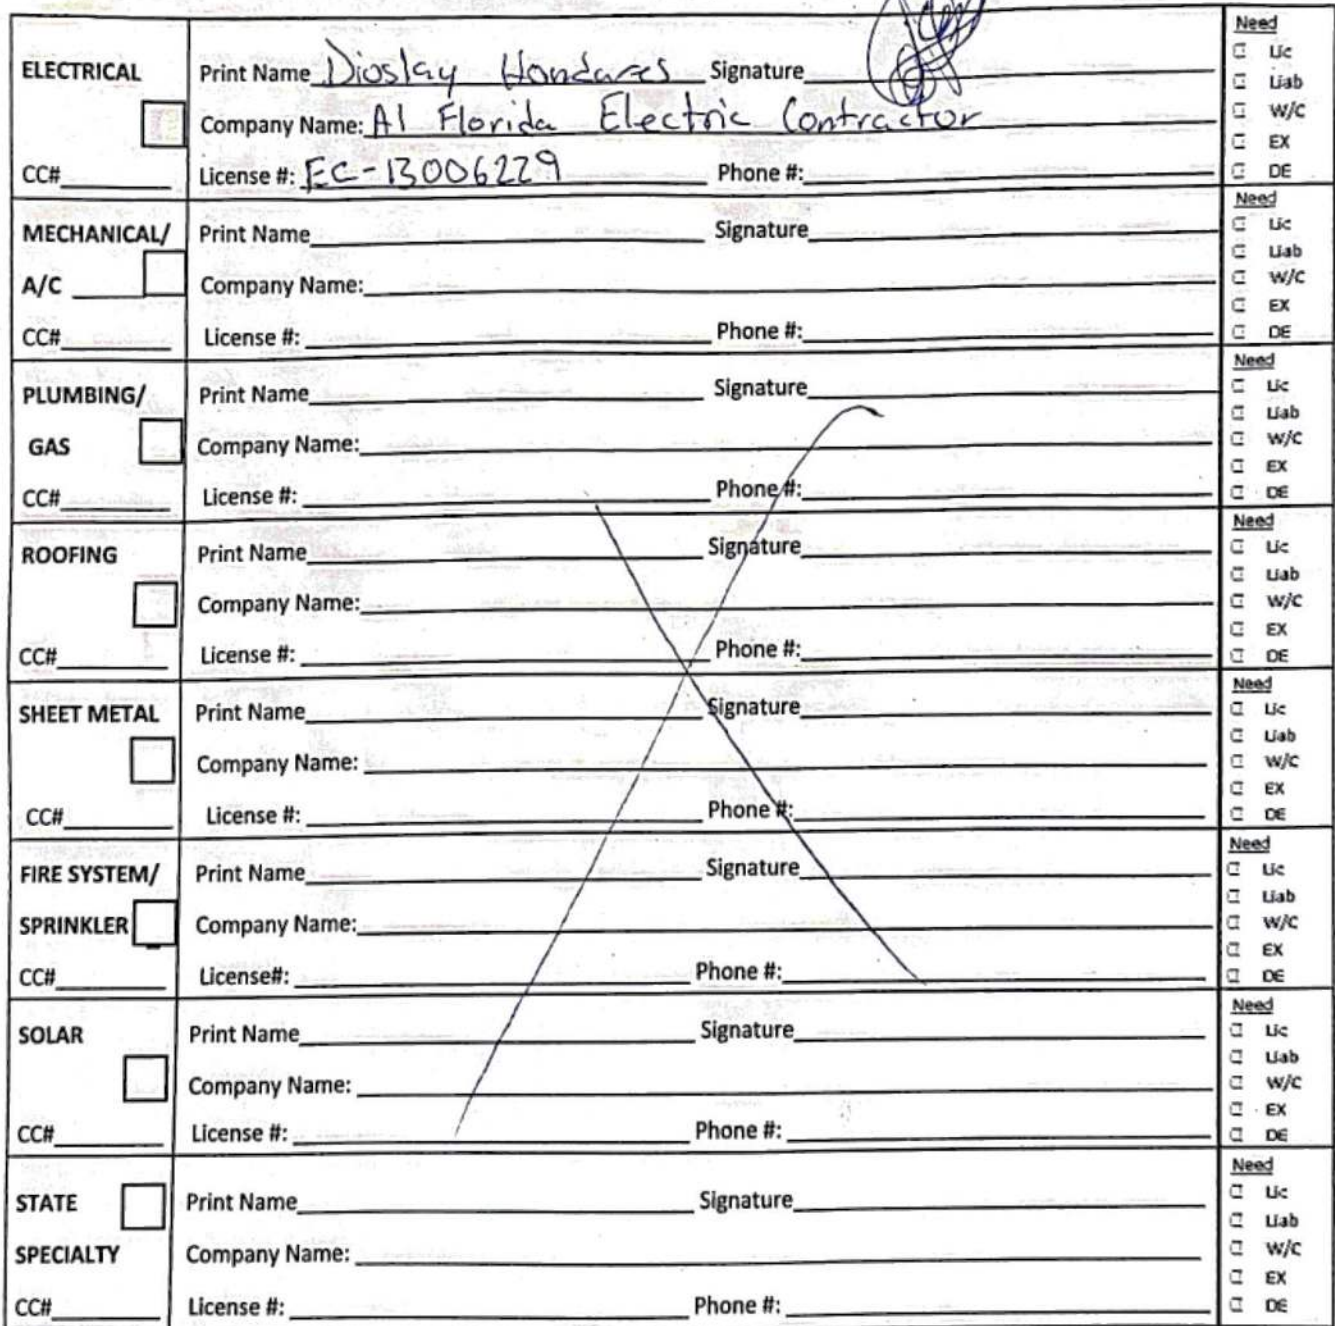 ELECTRICAL
CC#
Print Name Dioslay Hondares Signature
Company Name: A1 Florida Electric Contractor
License #: EC-13006229 Phone #:
Need
Lic
Liab
W/C
EX
DE
MECHANICAL/
A/C
CC#
Print Name Signature
Company Name:
License #: Phone #:
Need
Lic
Liab
W/C
EX
DE
PLUMBING/
GAS
CC#
Print Name Signature
Company Name:
License #: Phone #:
Need
Lic
Liab
W/C
EX
DE
ROOFING
CC#
Print Name Signature
Company Name:
License #: Phone #:
Need
Lic
Liab
W/C
EX
DE
SHEET METAL
CC#
Print Name Signature
Company Name:
License #: Phone #:
Need
Lic
Liab
W/C
EX
DE
FIRE SYSTEM/
SPRINKLER
CC#
Print Name Signature
Company Name:
License#: Phone #:
Need
Lic
Liab
W/C
EX
DE
SOLAR
CC#
Print Name Signature
Company Name:
License #: Phone #:
Need
Lic
Liab
W/C
EX
DE
STATE
SPECIALTY
CC#
Print Name Signature
Company Name:
License #: Phone #:
Need
Lic
Liab
W/C
EX
DE